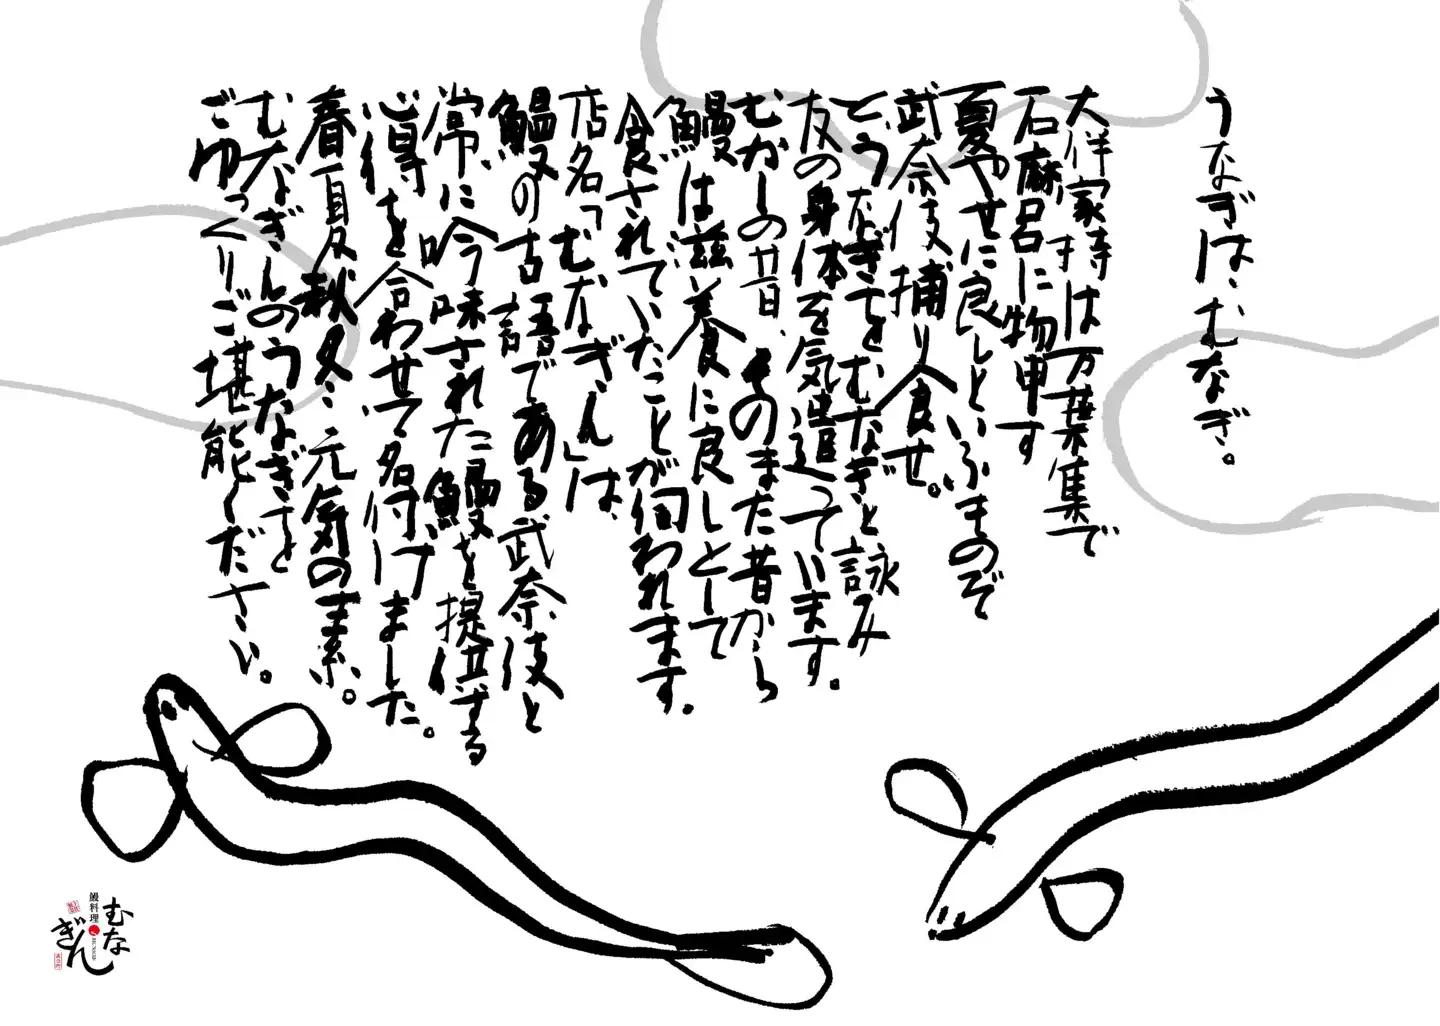 うなぎは、むなぎ。
大伴家持は万葉集で
石麻呂に物申す
夏やせに良しといふものぞ
武奈伎捕り食せ。
とうなぎをむなぎと詠み
友の身体を気遣っています。
むかしの昔、そのまた昔から
鰻は滋養に良しとして
食されていたことが伺われます。
店名「むなぎん」は、
鰻の古語である武奈伎と
常に吟味された鰻を提供する
心得を合わせて名付けました。
春夏秋冬、元気の素。
むなぎんのうなぎをと
ごゆっくりご堪能ください。
鰻料理
むな
ぎん